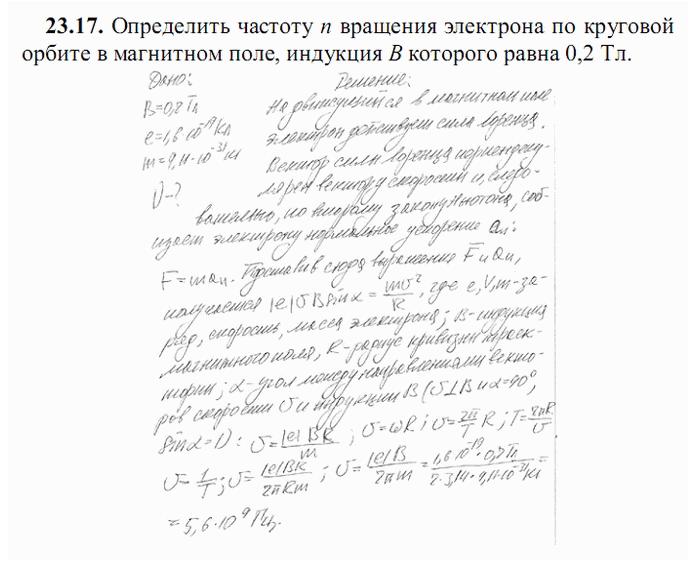 23.17. Определить частоту n вращения электрона по круговой
орбите в магнитном поле, индукция B которого равна 0,2 Тл.
Дано: Решение:
B=0,2Тл На движущийся в магнитном поле
e=1,6·10⁻¹⁹Кл электрон действует сила Лоренца.
m=9,11·10⁻³¹кг Вектор силы Лоренца перпендику-
υ-? лярен вектору скорости и, следо-
вательно, по второму закону Ньютона, сооб-
щает электрону нормальное ускорение aₙ:
F=maₙ. Подставив сюда выражения F и aₙ,
получается |e|υBsinα = mυ²/R, где e, V, m-за-
ряд, скорость, масса электрона; B-индукция
магнитного поля, R-радиус кривизны траек-
тории; α-угол между направлениями векто-
ров скорости υ и индукции B (υ⊥B и α=90°,
sinα=1): υ = |e|BR/m ; υ=ωR; υ=2π/T R; T=2πR/υ
υ = 1/T; υ = |e|BR/2πRm ; υ = |e|B/2πm = 1,6·10⁻¹⁹·0,2Тл/2·3,14·9,11·10⁻³¹кг =
= 5,6·10⁹ Гц.